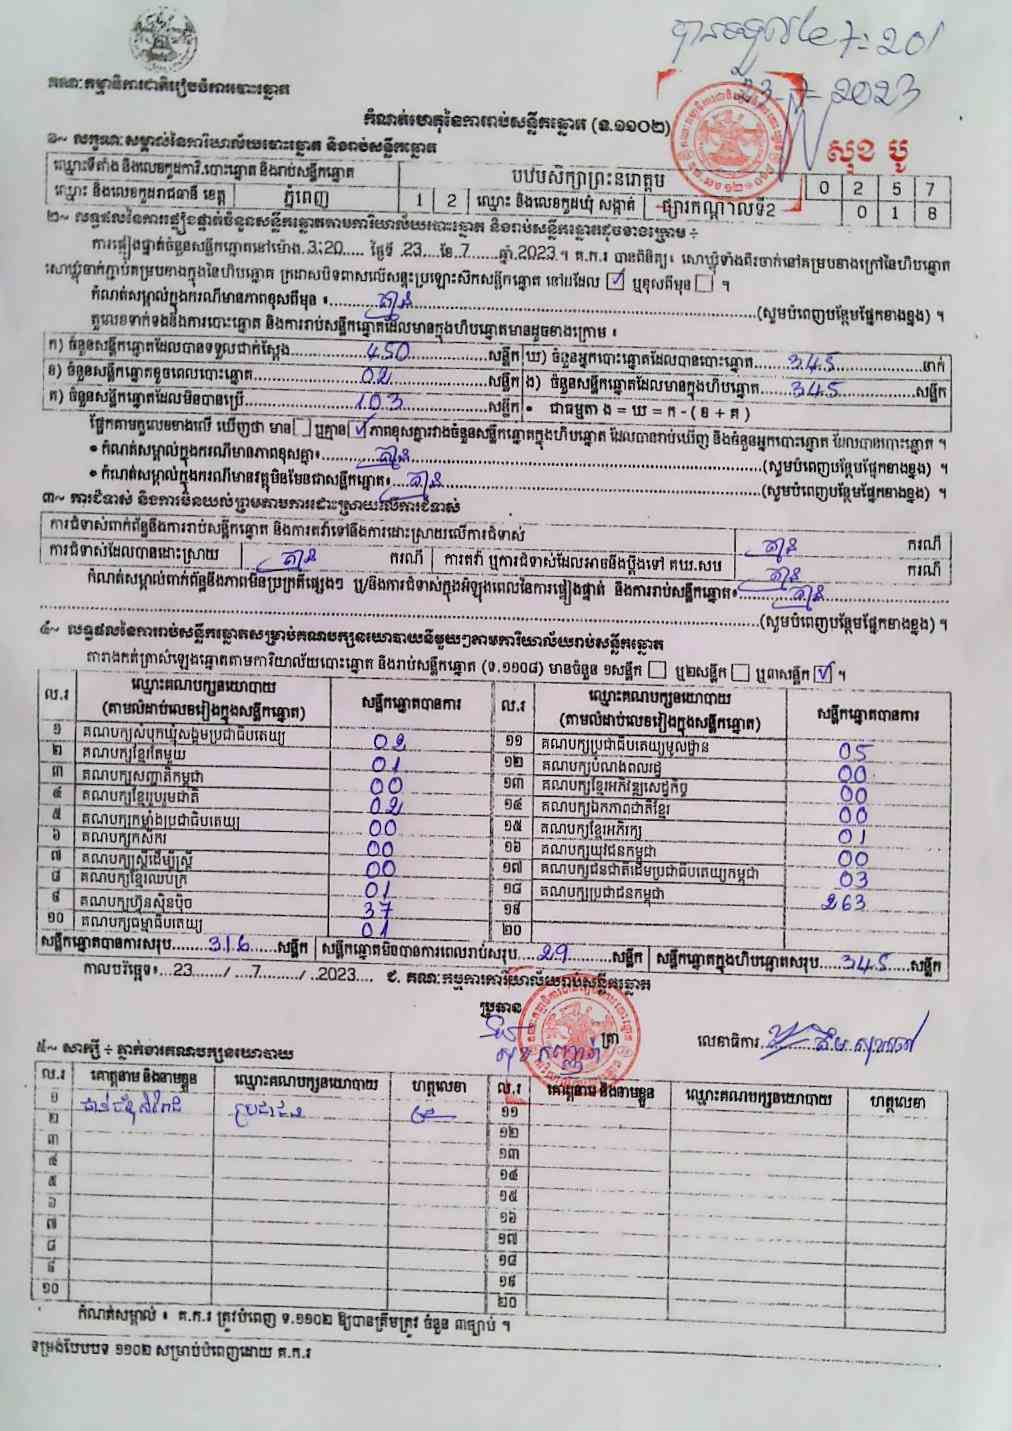 បានទទួល 7:20
23-7-2023
គណៈកម្មាធិការជាតិរៀបចំការបោះឆ្នោត
កំណត់ហេតុនៃការរាប់សន្លឹកឆ្នោត (ទ.១១០២)
សុខ បូ
១~ លក្ខណៈសម្គាល់នៃការិយាល័យបោះឆ្នោត និងរាប់សន្លឹកឆ្នោត
ឈ្មោះទីតាំង និងលេខកូដការិ.បោះឆ្នោត និងរាប់សន្លឹកឆ្នោត បឋមសិក្សាព្រះនរោត្តម 0 2 5 7
ឈ្មោះ និងលេខកូដរាជធានី ខេត្ត ភ្នំពេញ 1 2 ឈ្មោះ និងលេខកូដឃុំ សង្កាត់ ផ្សារកណ្ដាលទី2 0 1 8
២~ លទ្ធផលនៃការផ្ទៀងផ្ទាត់ចំនួនសន្លឹកឆ្នោតតាមការិយាល័យបោះឆ្នោត និងរាប់សន្លឹកឆ្នោតដូចខាងក្រោម ÷
ការផ្ទៀងផ្ទាត់ចំនួនសន្លឹកឆ្នោតនៅម៉ោង.3:20..... ថ្ងៃទី .23....ខែ..7.......ឆ្នាំ.2023.។ គ.ក.រ បានពិនិត្យ៖ សោឃ្លុំទាំងពីរចាក់នៅគម្របខាងក្រៅនៃហិបឆ្នោត
សោឃ្លុំចាក់ភ្ជាប់គម្របខាងក្នុងនៃហិបឆ្នោត ក្រដាសបិទពាសលើសន្ទះប្រឡោះស៊កសន្លឹកឆ្នោត នៅដដែល ☑ ឬខុសពីមុន ☐ ។
កំណត់សម្គាល់ក្នុងករណីមានភាពខុសពីមុន ៖ គ្មាន (សូមបំពេញបន្ថែមផ្នែកខាងខ្នង) ។
តួលេខទាក់ទងនឹងការបោះឆ្នោត និងការរាប់សន្លឹកឆ្នោតដែលមានក្នុងហិបឆ្នោតមានដូចខាងក្រោម ៖
ក) ចំនួនសន្លឹកឆ្នោតដែលបានទទួលជាក់ស្ដែង 450 សន្លឹក ឃ) ចំនួនអ្នកបោះឆ្នោតដែលបានបោះឆ្នោត 345 នាក់
ខ) ចំនួនសន្លឹកឆ្នោតខូចពេលបោះឆ្នោត 02 សន្លឹក ង) ចំនួនសន្លឹកឆ្នោតដែលមានក្នុងហិបឆ្នោត 345 សន្លឹក
គ) ចំនួនសន្លឹកឆ្នោតដែលមិនបានប្រើ 103 សន្លឹក • ជាធម្មតា ង = ឃ = ក - ( ខ + គ )
ផ្អែកតាមតួលេខខាងលើ ឃើញថា មាន ☐ ឬគ្មាន ☑ ភាពខុសគ្នារវាងចំនួនសន្លឹកឆ្នោតក្នុងហិបឆ្នោត ដែលបានរាប់ឃើញ និងចំនួនអ្នកបោះឆ្នោត ដែលបានបោះឆ្នោត ។
• កំណត់សម្គាល់ក្នុងករណីមានភាពខុសគ្នា៖ គ្មាន (សូមបំពេញបន្ថែមផ្នែកខាងខ្នង) ។
• កំណត់សម្គាល់ក្នុងករណីមានវត្ថុមិនមែនជាសន្លឹកឆ្នោត៖ គ្មាន (សូមបំពេញបន្ថែមផ្នែកខាងខ្នង) ។
៣~ ការជំទាស់ និងការមិនយល់ព្រមតាមការដោះស្រាយលើការជំទាស់
ការជំទាស់ពាក់ព័ន្ធនឹងការរាប់សន្លឹកឆ្នោត និងការតវ៉ាទៅនឹងការដោះស្រាយលើការជំទាស់ គ្មាន ករណី
ការជំទាស់ដែលបានដោះស្រាយ គ្មាន ករណី ការតវ៉ា ឬការជំទាស់ដែលអាចនឹងប្ដឹងទៅ គឃ.សប គ្មាន ករណី
កំណត់សម្គាល់ពាក់ព័ន្ធនឹងភាពមិនប្រក្រតីផ្សេងៗ ឬ/និងការជំទាស់ក្នុងអំឡុងពេលនៃការផ្ទៀងផ្ទាត់ និងការរាប់សន្លឹកឆ្នោត៖ គ្មាន
(សូមបំពេញបន្ថែមផ្នែកខាងខ្នង) ។
៤~ លទ្ធផលនៃការរាប់សន្លឹកឆ្នោតសម្រាប់គណបក្សនយោបាយនីមួយៗតាមការិយាល័យរាប់សន្លឹកឆ្នោត
តារាងកត់ត្រាសំឡេងឆ្នោតតាមការិយាល័យបោះឆ្នោត និងរាប់សន្លឹកឆ្នោត (ទ.១១០៨) មានចំនួន ១សន្លឹក ☐ ឬ២សន្លឹក ☐ ឬ៣សន្លឹក ☑ ។
ល.រ ឈ្មោះគណបក្សនយោបាយ (តាមលំដាប់លេខរៀងក្នុងសន្លឹកឆ្នោត) សន្លឹកឆ្នោតបានការ ល.រ ឈ្មោះគណបក្សនយោបាយ (តាមលំដាប់លេខរៀងក្នុងសន្លឹកឆ្នោត) សន្លឹកឆ្នោតបានការ
១ គណបក្សសំបុកឃ្មុំសង្គមប្រជាធិបតេយ្យ 02 ១១ គណបក្សប្រជាធិបតេយ្យមូលដ្ឋាន 05
២ គណបក្សខ្មែរតែមួយ 01 ១២ គណបក្សបំណងពលរដ្ឋ 00
៣ គណបក្សសញ្ជាតិកម្ពុជា 00 ១៣ គណបក្សខ្មែរអភិវឌ្ឍសេដ្ឋកិច្ច 00
៤ គណបក្សខ្មែររួបរួមជាតិ 02 ១៤ គណបក្សឯកភាពជាតិខ្មែរ 00
៥ គណបក្សកម្លាំងប្រជាធិបតេយ្យ 00 ១៥ គណបក្សខ្មែរអភិរក្ស 01
៦ គណបក្សកសិករ 00 ១៦ គណបក្សយុវជនកម្ពុជា 00
៧ គណបក្សស្ត្រីដើម្បីស្ត្រី 00 ១៧ គណបក្សជនជាតិដើមប្រជាធិបតេយ្យកម្ពុជា 03
៨ គណបក្សខ្មែរឈប់ក្រ 01 ១៨ គណបក្សប្រជាជនកម្ពុជា 263
៩ គណបក្សហ៊្វុនស៊ិនប៉ិច 37 ១៩
១០ គណបក្សធម្មាធិបតេយ្យ 01 ២០
សន្លឹកឆ្នោតបានការសរុប 316 សន្លឹក សន្លឹកឆ្នោតមិនបានការពេលរាប់សរុប 29 សន្លឹក សន្លឹកឆ្នោតក្នុងហិបឆ្នោតសរុប 345 សន្លឹក
កាលបរិច្ឆេទ៖...23......./....7........./...2023.... ជ. គណៈកម្មការការិយាល័យរាប់សន្លឹកឆ្នោត
ប្រធាន
ត្រា
លេខាធិការ
៥~ សាក្សី ÷ ភ្នាក់ងារគណបក្សនយោបាយ
ល.រ គោត្តនាម និងនាមខ្លួន ឈ្មោះគណបក្សនយោបាយ ហត្ថលេខា ល.រ គោត្តនាម និងនាមខ្លួន ឈ្មោះគណបក្សនយោបាយ ហត្ថលេខា
១ ប្រជាជន ១១
២ ១២
៣ ១៣
៤ ១៤
៥ ១៥
៦ ១៦
៧ ១៧
៨ ១៨
៩ ១៩
១០ ២០
កំណត់សម្គាល់ ៖ គ.ក.រ ត្រូវបំពេញ ទ.១១០២ ឱ្យបានត្រឹមត្រូវ ចំនួន ៣ច្បាប់ ។
ទម្រង់បែបបទ ១១០២ សម្រាប់បំពេញដោយ គ.ក.រ